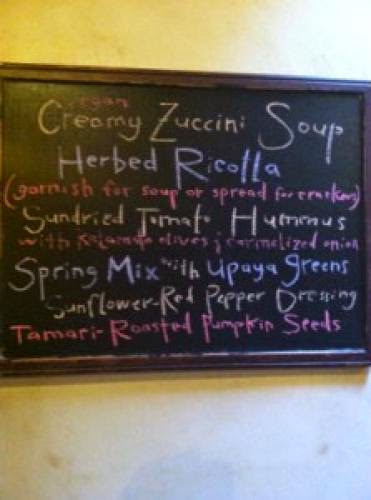 vegan
Creamy Zuccini Soup
Herbed Ricotta
(garnish for soup or spread for crackers)
Sundried Tomato Hummus
with Kalamata olives & carmelized onion
Spring Mix with Upaya Greens
Sunflower-Red Pepper Dressing
Tamari-Roasted Pumpkin Seeds